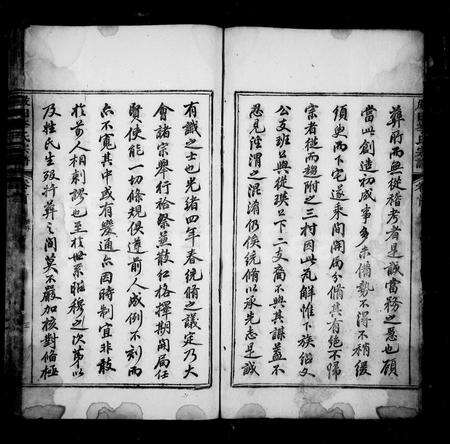 葬所而無從稽考者是誠當務之急也顧
當此創造初成事多未備勢不得不稍緩
須臾而下宅遂乘間開局分脩其有絶不歸
宗者從而趨附之三村因此瓦解惟下族紹文
公支班公與從瑛公下二支裔不與其謀蓋不
忍見涇渭之混淆仍俟統脩以承先志是誠
有識之士也光緒四年春統脩之議定乃大
會諸宗舉行袷祭並散紅格擇期開局任
賢使能一切條規俱遵前人成例不刻而
亦不寬其中或有變通亦因時制宜非敢
於前人相剌謬也至於世系昭穆之次第以
及姓氏生殁行葬之間莫不嚴加核對脩極